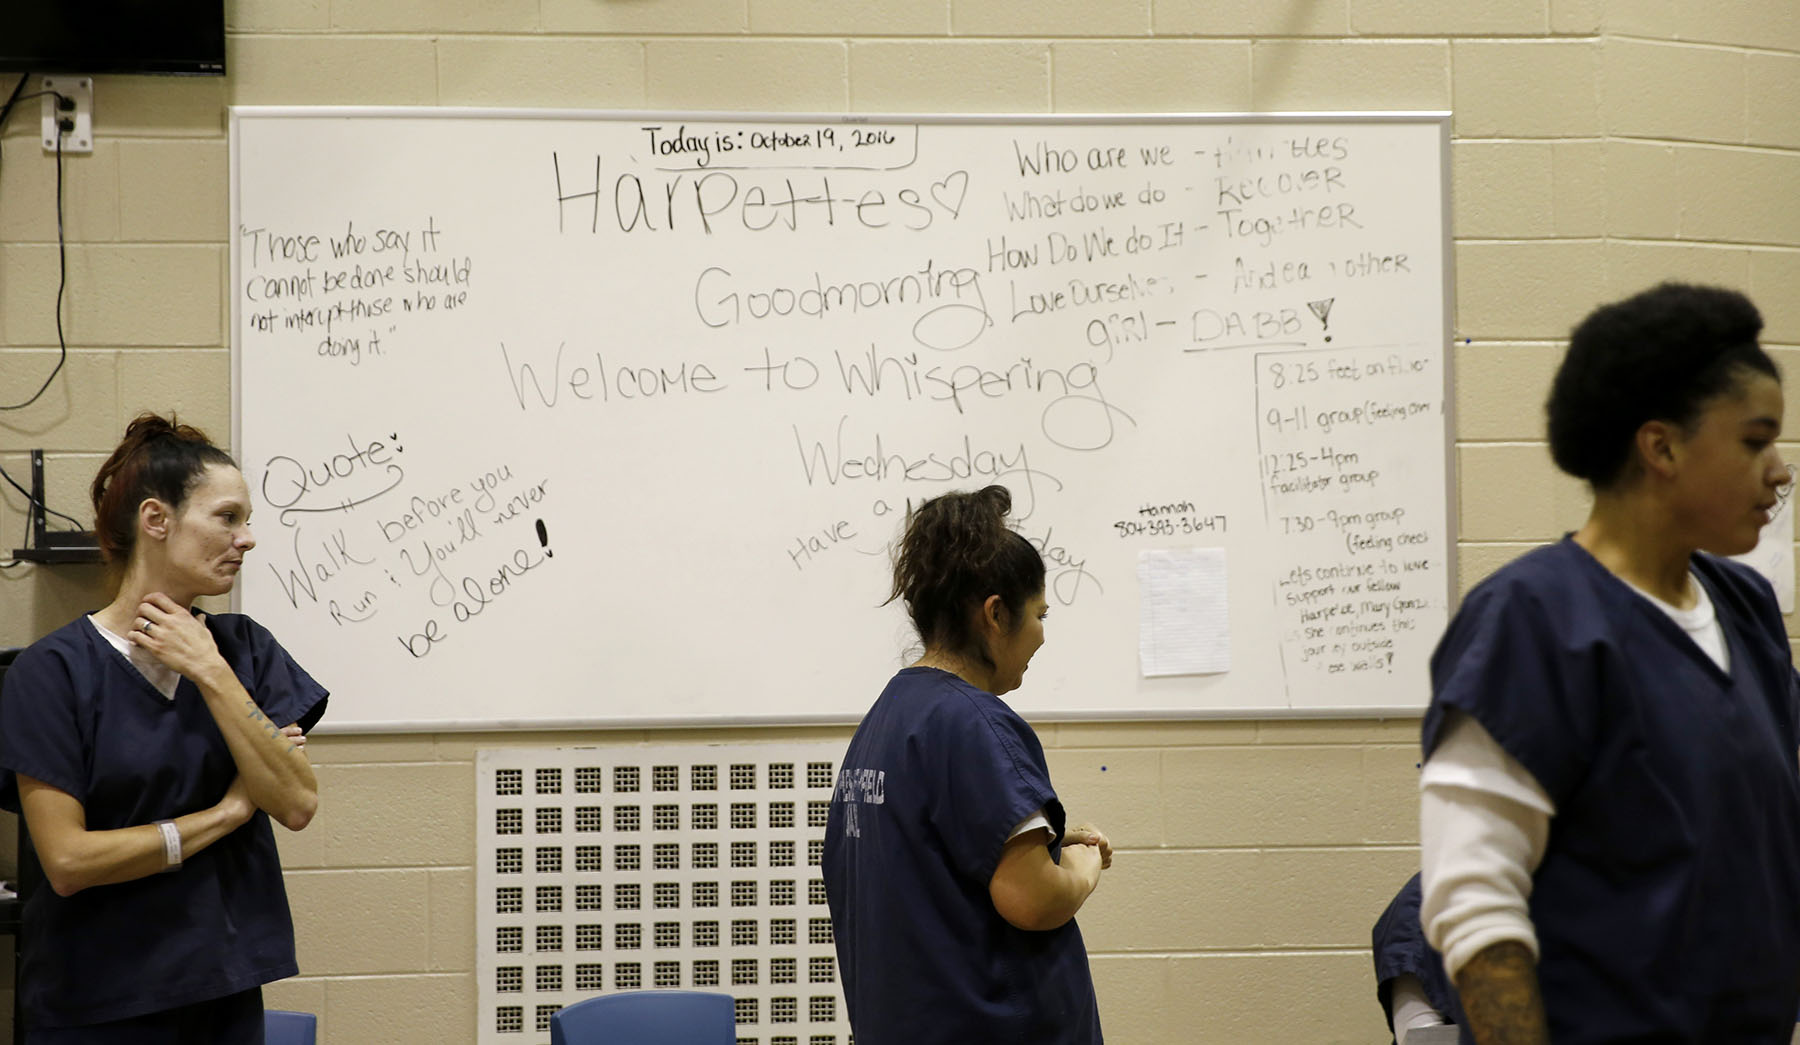 Today is: October 19, 2016
Harpettes
Goodmorning
Welcome to Whispering
Wednesday
Have a
day
"Those who say it
cannot be done should
not interupt those who are
doing it."
Quote:
Walk before you
Run; You'll never
be alone!
Who are we -
What do we do - Recover
How Do We do It - Together
Love Ourselves - And each other
girl - DABB!
8:25 feet on floor
9-11 group (feeling chec
12:25-4pm
facilitator group
7:30-9pm group
(feeling check
Lets continue to love
Support our fellow
Mary
as she continues this
journey outside
these walls!
Hannah
804-393-3647
JAIL